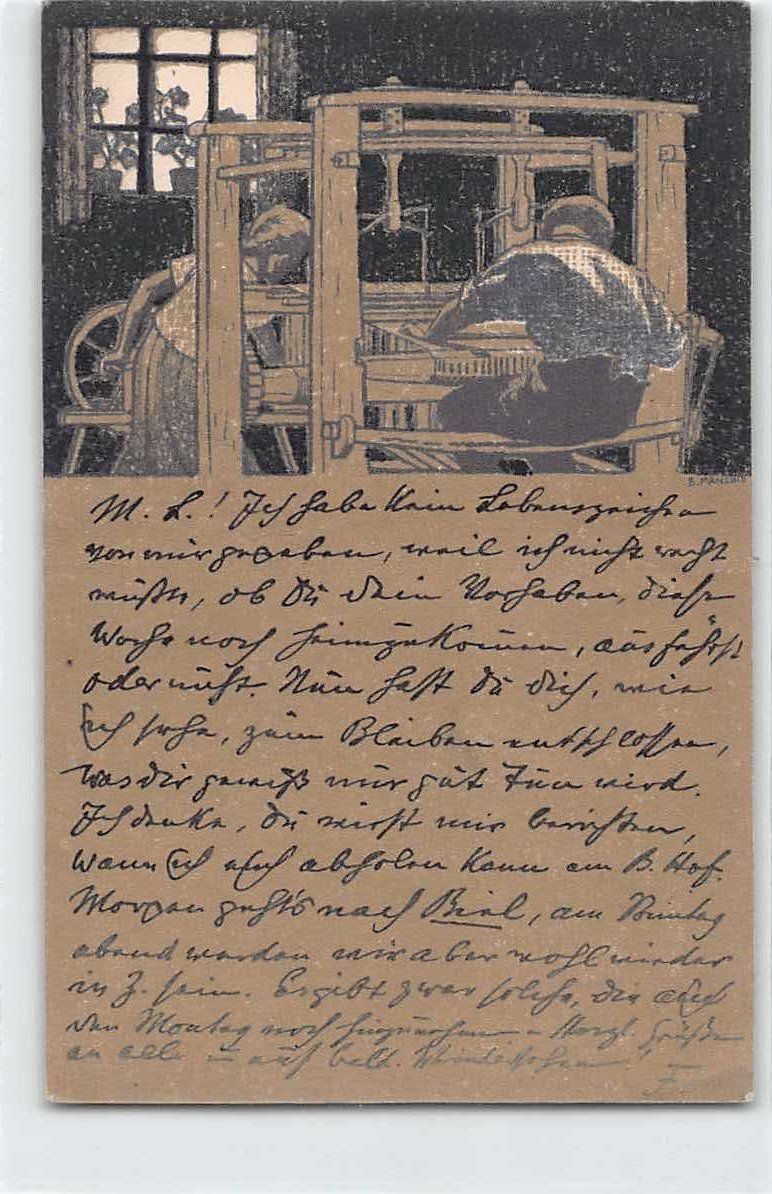 B. MANGOLD
M. L.! Ich habe kein Lebenszeichen
von mir gegeben, weil ich nicht recht
wußte, ob Du Dein Vorhaben, diese
Woche noch heimzukommen, ausführst
oder nicht. Nun hast Du Dich, wie
ich sehe, zum Bleiben entschlossen,
was Dir gewiß nur gut tun wird.
Ich denke, Du wirst mir berichten,
wann ich Euch abholen kann am B. Hof.
Morgen geht's nach Biel, am Sonntag
abend werden wir aber wohl wieder
in Z. sein. Es gibt zwar solche, die auch
den Montag noch hinzunehmen. Herzl. Grüße
an alle u. auf bald. Wiedersehen!
E.